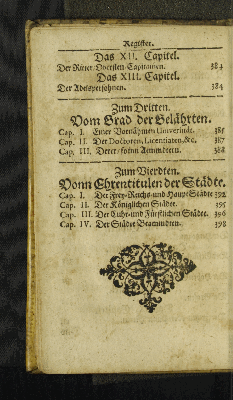 Register.
Das XII. Capitel.
Der Ritter, Obersten, Capitainen. 384
Das XIII. Capitel.
Der Adelspersohnen. 384
Zum Dritten.
Vom Grad der Gelährten.
Cap. I. Einer Vornähmen Universität. 385
Cap. II. Der Doctoren, Licentiaten, &c. 387
Cap. III. Derer 388
Zum Vierdten.
Vonn Ehrentitulen der Städte.
Cap. I. Der Frey-Reichs-und Haupt Städte 392
Cap. II. Der Königlichen Städte. 395
Cap. III. Der Chur-und Fürstlichen Städte. 396
Cap. IV. Der Städte Beamndten. 398